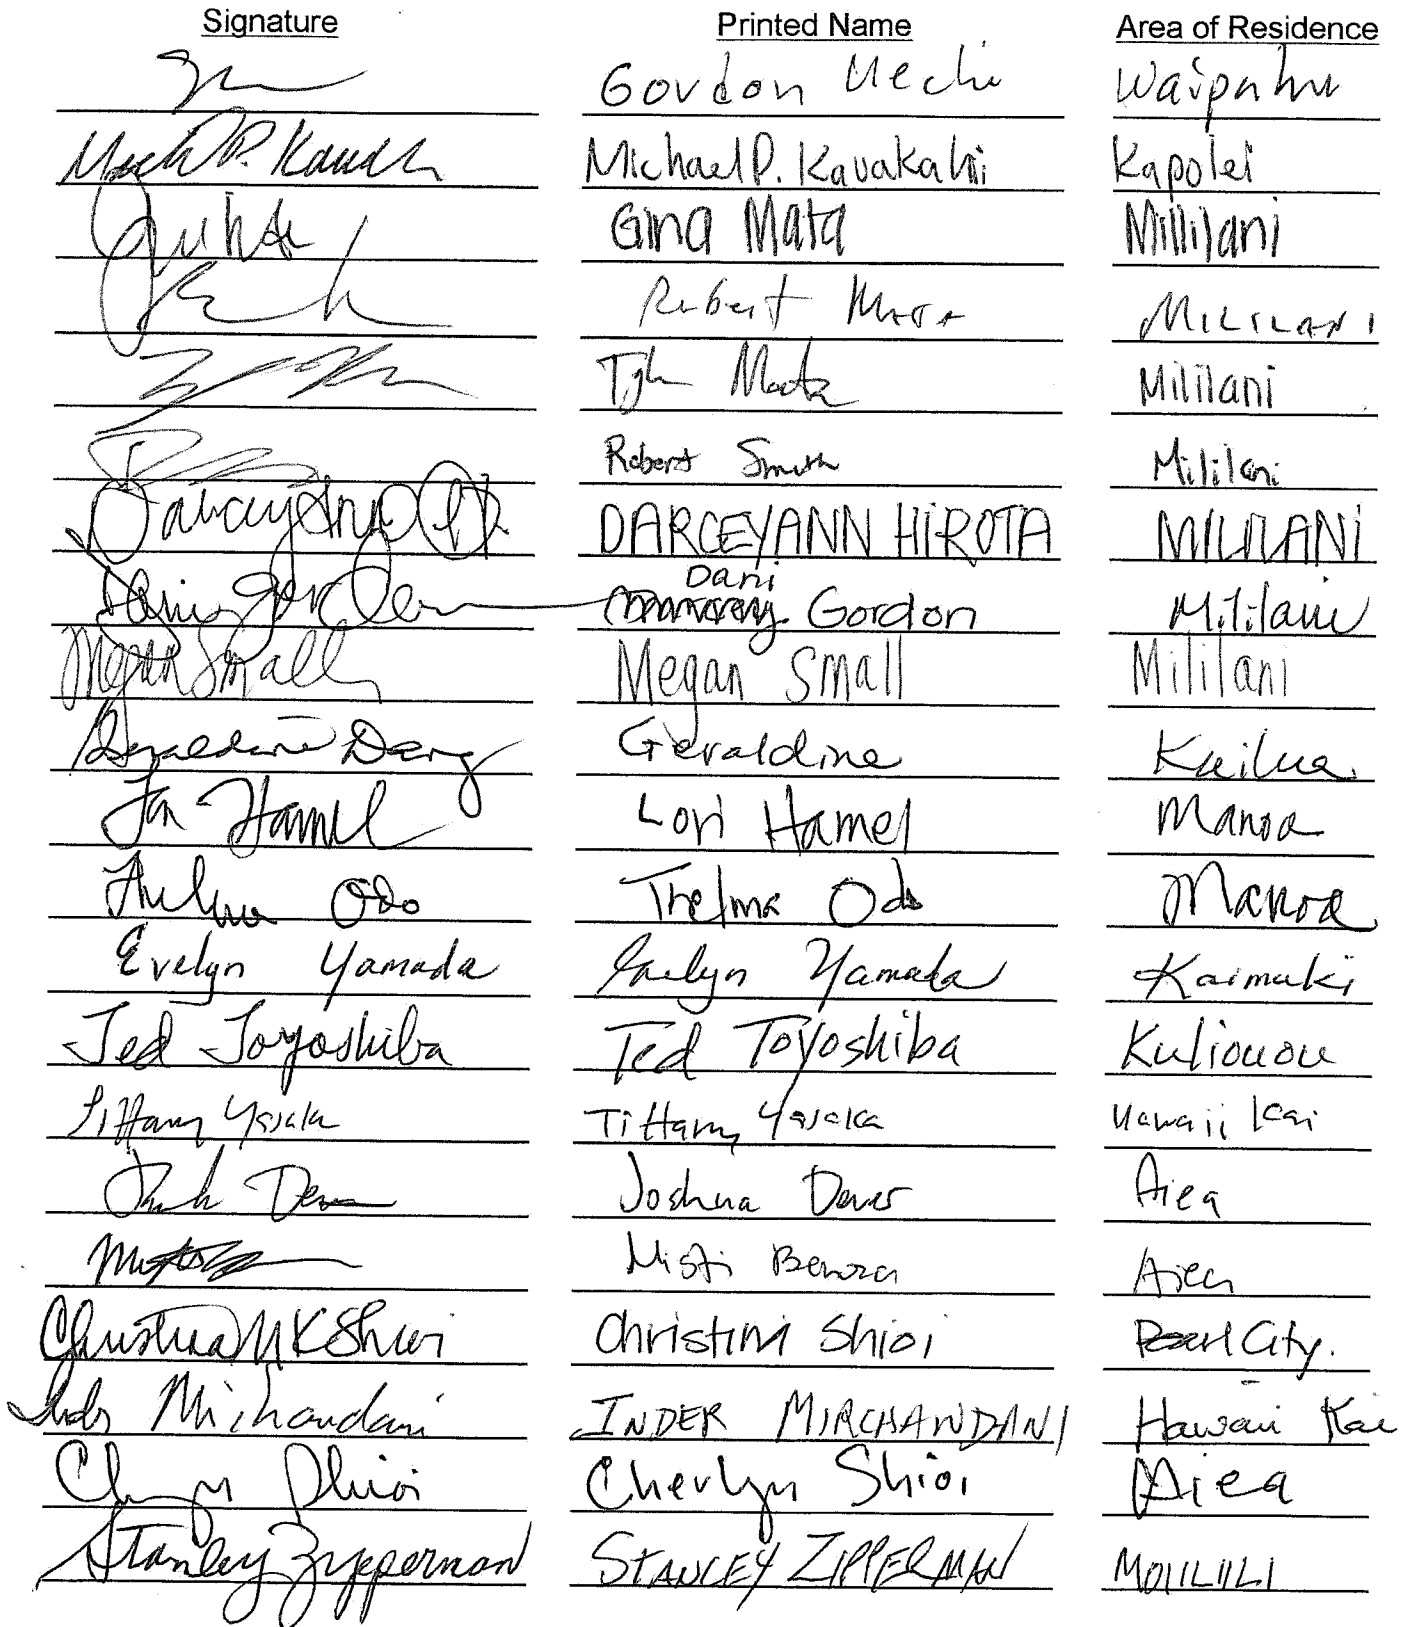 Signature Printed Name Area of Residence
Gordon Uechi Waipahu
Michael P. Kavakahi Kapolei
Gina Mata Millilani
Robert Mata MILILANI
Mata Mililani
Robert Smith Mililani
DarceyAnn DARCEYANN HIROTA MILILANI
Dani
Gordon Mililani
Megan Small Megan Small Mililani
Geraldine Dang Geraldine Kailua
Hamel Lori Hamel Manoa
Thelma Odo Thelma Odo Manoa
Evelyn Yamada Evelyn Yamada Kaimuki
Ted Toyoshiba Ted Toyoshiba Kuliouou
Tiffany Yasaka Tiffany Yasaka Hawaii Kai
Joshua Aiea
Misti Aiea
Shioi Christina Shioi Pearl City.
Inder Mirchandani INDER MIRCHANDANI Hawaii Kai
Shioi Cherlyn Shioi Aiea
Stanley Zipperman STANLEY ZIPPERMAN MOIILIILI